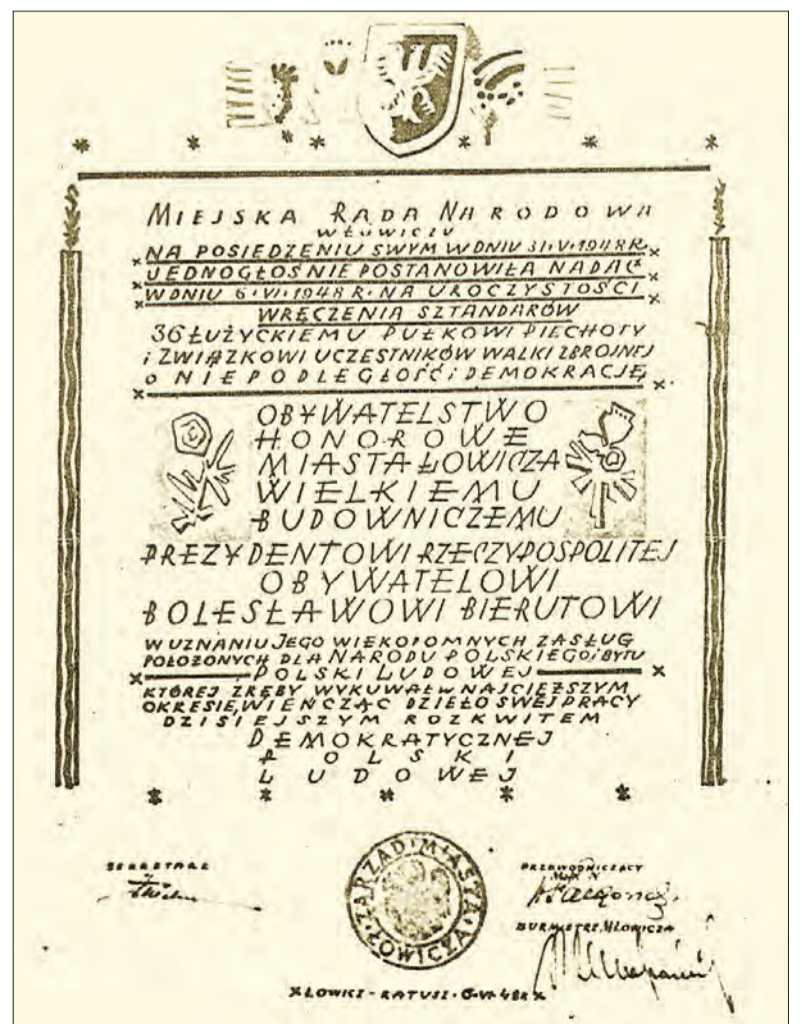 MIEJSKA RADA NARODOWA
W ŁOWICZU
NA POSIEDZENIU SWYM W DNIU 31·V·1948 R.
JEDNOGŁOŚNIE POSTANOWIŁA NADAĆ
W DNIU 6·VI·1948 R· NA UROCZYSTOŚCI
WRĘCZENIA SZTANDARÓW
36 ŁUŻYCKIEMU PUŁKOWI PIECHOTY
i ZWIĄZKOWI UCZESTNIKÓW WALKI ZBROJNEJ
O NIEPODLEGŁOŚĆ i DEMOKRACJĘ
OBYWATELSTWO
HONOROWE
MIASTA ŁOWICZA
WIELKIEMU
BUDOWNICZEMU
PREZYDENTOWI RZECZYPOSPOLITEJ
OBYWATELOWI
BOLESŁAWOWI BIERUTOWI
W UZNANIU JEGO WIEKOPOMNYCH ZASŁUG
POŁOŻONYCH DLA NARODU POLSKIEGO i BYTU
POLSKI LUDOWEJ
KTÓREJ ZRĘBY WYKUWAŁ W NAJCIĘŻSZYM
OKRESIE, WIEŃCZĄC DZIEŁO SWEJ PRACY
DZISIEJSZYM ROZKWITEM
DEMOKRATYCZNEJ
POLSKI
LUDOWEJ
SEKRETARZ
ZARZĄD·MIASTA
·ŁOWICZA·
PRZEWODNICZĄCY
BURMISTRZ M. ŁOWICZA
ŁOWICZ - RATUSZ · 6·VI·48 R